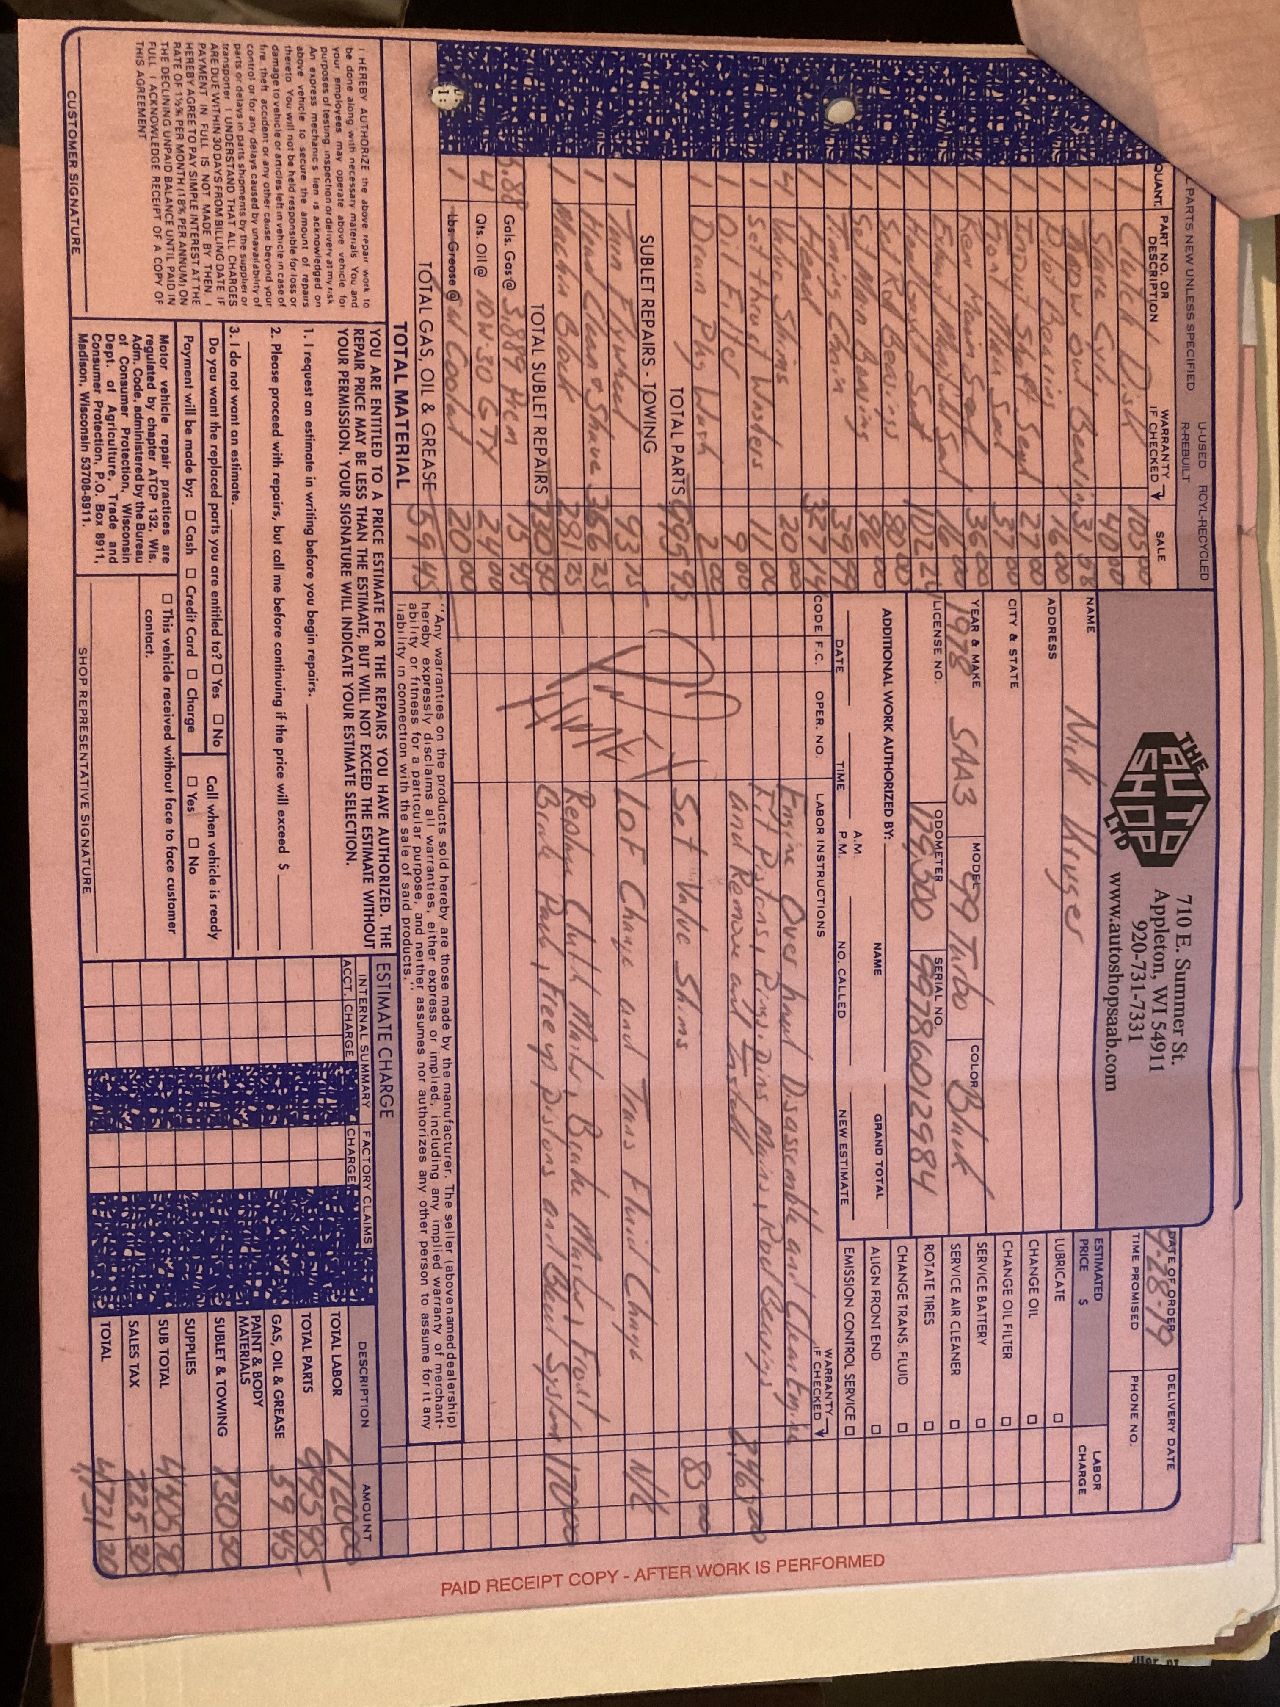 PARTS NEW UNLESS SPECIFIED
U-USED RCYL-RECYCLED
R-REBUILT
QUANT. PART NO. OR DESCRIPTION WARRANTY IF CHECKED SALE
1 Clutch Disk 105 00
1 Slave Cyl. 40 00
1 Throw out Bearing 31 68
Bearing 16 00
Seal 27 00
Front Main Seal 37 00
Rear Main Seal 36 00
Manifold Seal 16 00
Set Rod Bearings 80 00
Set Main Bearing
1 Timing Chain
4 Valve Shims 20 00
Set thrust Washers
Oil Filter 9 00
Drain Plug Wash 2 00
TOTAL PARTS 995 95
SUBLET REPAIRS - TOWING
1 Flywheel 93 75
1 Head Clean & Shave 366 25
1 Machin Block
TOTAL SUBLET REPAIRS 730 50
3.88 Gals. Gas @ 3.889 Prem 15 45
4 Qts. Oil @ 10W-30 GTX 24 00
1 Lbs. Grease @ Gal Coolant 20 00
TOTAL GAS, OIL & GREASE 59 45
TOTAL MATERIAL
THE AUTO SHOP LTD
710 E. Summer St.
Appleton, WI 54911
920-731-7331
www.autoshopsaab.com
NAME Nick Kruger
ADDRESS
CITY & STATE
YEAR & MAKE 1978 SAAB MODEL 99 Turbo COLOR Black
LICENSE NO. ODOMETER 129,300 SERIAL NO. 99786012984
DATE OF ORDER DELIVERY DATE
TIME PROMISED PHONE NO.
ESTIMATED PRICE $ LABOR CHARGE
LUBRICATE
CHANGE OIL
CHANGE OIL FILTER
SERVICE BATTERY
SERVICE AIR CLEANER
ROTATE TIRES
CHANGE TRANS. FLUID
ALIGN FRONT END
EMISSION CONTROL SERVICE
ADDITIONAL WORK AUTHORIZED BY: NAME GRAND TOTAL
DATE TIME A.M. P.M. NO. CALLED NEW ESTIMATE
CODE F.C. OPER. NO. LABOR INSTRUCTIONS WARRANTY IF CHECKED
Engine Over haul Disassemble and Clean Engine
Fit Pistons, Rings, Pins, Mains, Rod Bearings
and Remove and Install
Set Valve Shims 85 00
LOF Change and Trans Fluid Change N/C
Replace Clutch Master, Brake Master, Front
Brake Pads, Free up pistons and Bleed System
"Any warranties on the products sold hereby are those made by the manufacturer. The seller (above named dealership) hereby expressly disclaims all warranties, either express or implied, including any implied warranty of merchantability or fitness for a particular purpose, and neither assumes nor authorizes any other person to assume for it any liability in connection with the sale of said products."
I HEREBY AUTHORIZE the above repair work to be done along with necessary materials. You and your employees may operate above vehicle for purposes of testing, inspection or delivery at my risk. An express mechanic's lien is acknowledged on above vehicle to secure the amount of repairs thereto. You will not be held responsible for loss or damage to vehicle or articles left in vehicle in case of fire, theft, accident or any other cause beyond your control or for any delays caused by unavailability of parts or delays in parts shipments by the supplier or transporter. I UNDERSTAND THAT ALL CHARGES ARE DUE WITHIN 30 DAYS FROM BILLING DATE. IF PAYMENT IN FULL IS NOT MADE BY THEN, I HEREBY AGREE TO PAY SIMPLE INTEREST AT THE RATE OF 1½% PER MONTH (18% PER ANNUM) ON THE DECLINING UNPAID BALANCE UNTIL PAID IN FULL. I ACKNOWLEDGE RECEIPT OF A COPY OF THIS AGREEMENT.
CUSTOMER SIGNATURE
YOU ARE ENTITLED TO A PRICE ESTIMATE FOR THE REPAIRS YOU HAVE AUTHORIZED. THE REPAIR PRICE MAY BE LESS THAN THE ESTIMATE, BUT WILL NOT EXCEED THE ESTIMATE WITHOUT YOUR PERMISSION. YOUR SIGNATURE WILL INDICATE YOUR ESTIMATE SELECTION.
1. I request an estimate in writing before you begin repairs.
2. Please proceed with repairs, but call me before continuing if the price will exceed $
3. I do not want an estimate.
Do you want the replaced parts you are entitled to? Yes No
Payment will be made by: Cash Credit Card Charge
Call when vehicle is ready
Yes No
Motor vehicle repair practices are regulated by chapter ATCP 132, Wis. Adm. Code, administered by the Bureau of Consumer Protection, Wisconsin Dept. of Agriculture, Trade and Consumer Protection, P.O. Box 8911, Madison, Wisconsin 53708-8911.
This vehicle received without face to face customer contact.
SHOP REPRESENTATIVE SIGNATURE
ESTIMATE CHARGE
INTERNAL SUMMARY FACTORY CLAIMS DESCRIPTION AMOUNT
ACCT. CHARGE CHARGE
TOTAL LABOR
TOTAL PARTS 995 95
GAS, OIL & GREASE 59 45
PAINT & BODY MATERIALS
SUBLET & TOWING 730 50
SUPPLIES
SUB TOTAL
SALES TAX 225 30
TOTAL
PAID RECEIPT COPY - AFTER WORK IS PERFORMED